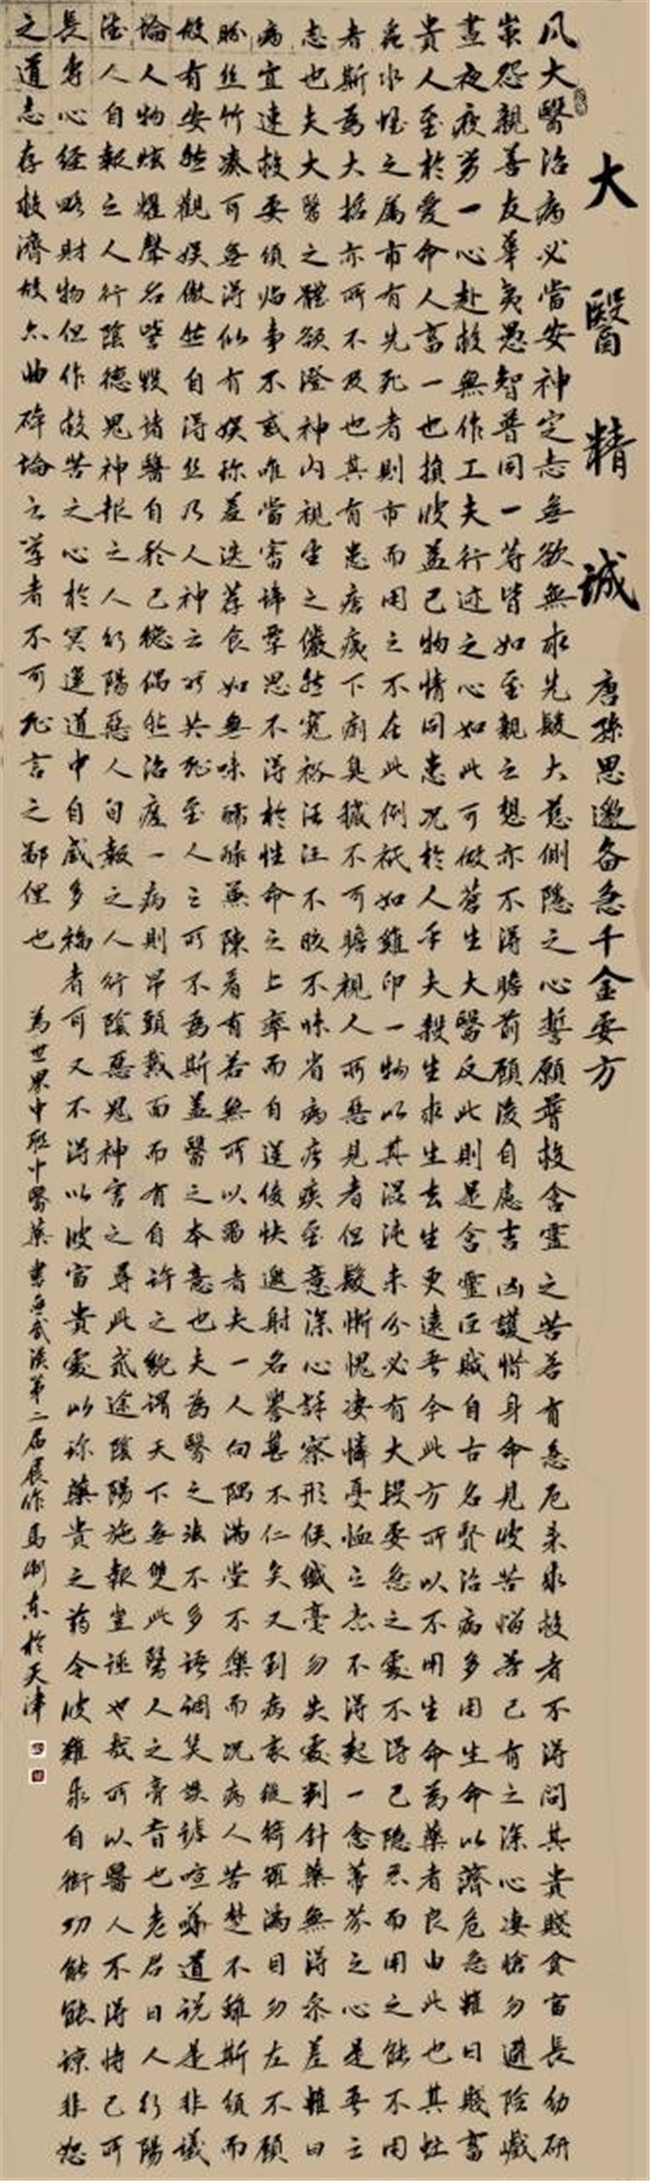 大醫精誠 唐孫思邈备急千金要方
凡大醫治病必當安神定志無欲無求先發大慈惻隱之心誓願普救含靈之苦若有急厄来求救者不得問其貴賤貧富長幼研
蚩怨親善友華夷愚智普同一等皆如至親之想亦不得瞻前顧後自慮吉凶護惜身命見彼苦惱若己有之深心凄愴勿避險巇
晝夜夜勞一心赴救無作工夫行迹之心如此可做蒼生大醫反此則是含靈巨賊自古名賢治病多用生命以濟危急雖曰賤畜
貴人至於愛命人畜一也損彼益己物情同患况於人乎夫殺生求生去生更遠吾今此方所以不用生命為藥者良由此也其虻
虫水蛭之属市有先死者則市而用之不在此例秪如雞卵一物以其混沌未分必有大段要急之處不得已隐忍而用之能不用
者斯為大哲亦所不及也其有患瘡痍下痢臭穢不可瞻視人所惡見者但發慚愧凄憐憂恤之意不得起一念蒂芥之心是吾之
志也夫大醫之體欲澄神内視望之儼然寬裕汪汪不皎不昧省病疹疾至意深心詳察形候纖毫勿失處判針藥無得参差雖曰
病宜速救要須临事不惑唯當審諦覃思不得於性命之上率而自逞俊快邀射名譽甚不仁矣又到病家縱綺羅滿目勿左不顧
盼丝竹凑可無得似有娱珍羞迭荐食如無味醽醁兼陳看有若無所以爾者夫一人向隅滿堂不樂而况病人苦楚不離斯須而
有安然觀娱傲然自得兹乃人神之所共耻至人之所不為斯蓋醫之本意也夫為醫之法不多語調笑談謔喧嘩道说是非議
論人物炫耀聲名訾毁諸醫自矜己德偶然治瘥一病則昂頭戴面而有自許之貌謂天下無雙此醫人之膏肓也老君曰人行陽
德人自報之人行陰德鬼神報之人行陽惡人自報之人行陰惡鬼神害之尋此貳途陰陽施報豈誣也哉所以醫人不得恃己所
長專心經略財物但作救苦之心於冥運道中自感多福者可又不得以彼富貴處以珍藥貴之药令彼難求自衒功能諒非恕
之道志存救濟故亦曲碎論之學者不可耻言之鄙俚也 為世界中联中醫藥書画武漢第二届展作馬衛东於天津